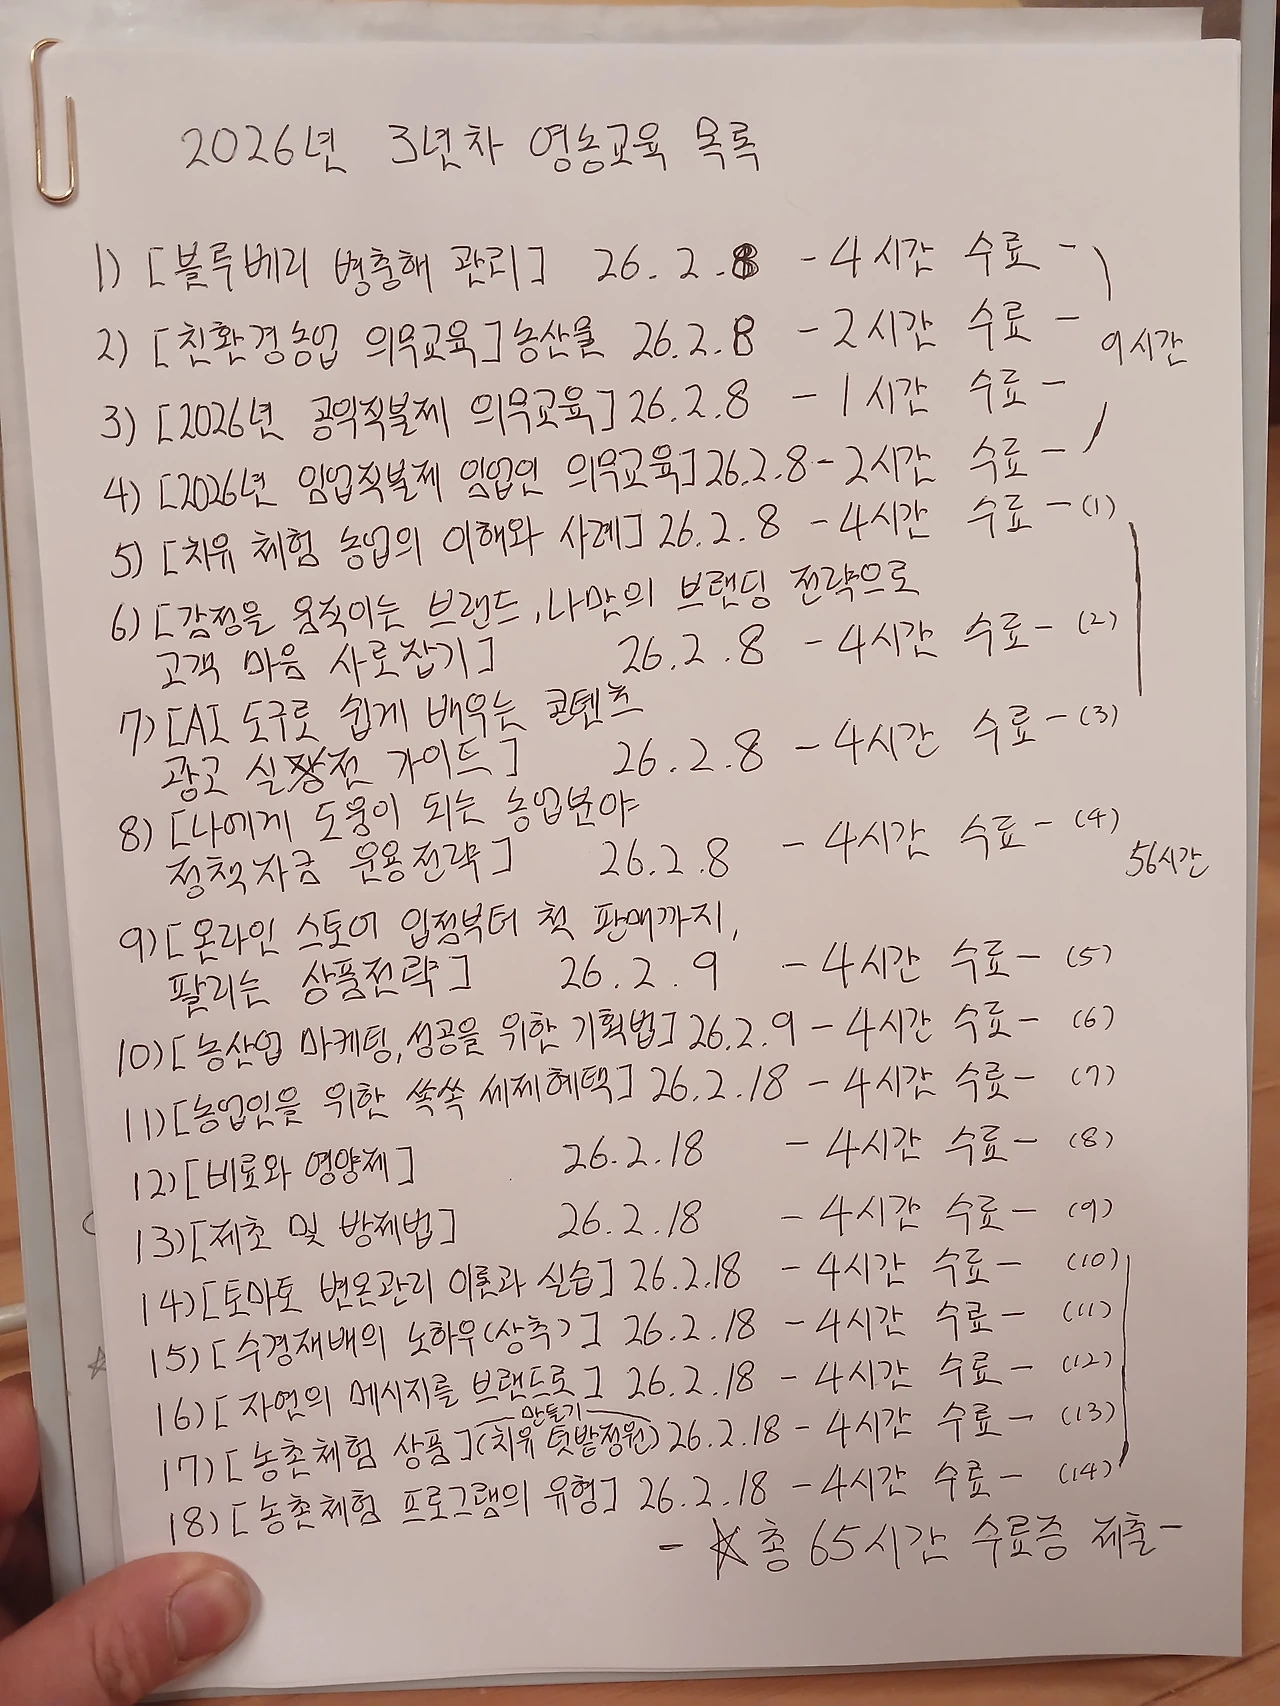 2026년 3년차 영농교육 목록
1) [블루베리 병충해 관리] 26.2.8 - 4시간 수료 -
2) [친환경농업 의무교육] 농산물 26.2.8 - 2시간 수료 -
9시간
3) [2026년 공익직불제 의무교육] 26.2.8 - 1시간 수료 -
4) [2026년 임업직불제 임업인 의무교육] 26.2.8 - 2시간 수료 -
5) [치유 체험 농업의 이해와 사례] 26.2.8 - 4시간 수료 - (1)
6) [감정을 움직이는 브랜드, 나만의 브랜딩 전략으로
고객 마음 사로잡기] 26.2.8 - 4시간 수료 - (2)
7) [AI 도구로 쉽게 배우는 콘텐츠
광고 실전 가이드] 26.2.8 - 4시간 수료 - (3)
8) [나에게 도움이 되는 농업분야
정책자금 운용전략] 26.2.8 - 4시간 수료 - (4)
56시간
9) [온라인 스토어 입점부터 첫 판매까지,
팔리는 상품전략] 26.2.9 - 4시간 수료 - (5)
10) [농산업 마케팅, 성공을 위한 기획법] 26.2.9 - 4시간 수료 - (6)
11) [농업인을 위한 쏙쏙 세제혜택] 26.2.18 - 4시간 수료 - (7)
12) [비료와 영양제] 26.2.18 - 4시간 수료 - (8)
13) [제초 및 방제법] 26.2.18 - 4시간 수료 - (9)
14) [토마토 변온관리 이론과 실습] 26.2.18 - 4시간 수료 - (10)
15) [수경재배의 노하우(상추)] 26.2.18 - 4시간 수료 - (11)
16) [자연의 메시지를 브랜드로] 26.2.18 - 4시간 수료 - (12)
만들기
17) [농촌체험 상품] (치유 텃밭정원) 26.2.18 - 4시간 수료 - (13)
18) [농촌체험 프로그램의 유형] 26.2.18 - 4시간 수료 - (14)
- ☆ 총 65시간 수료증 제출 -